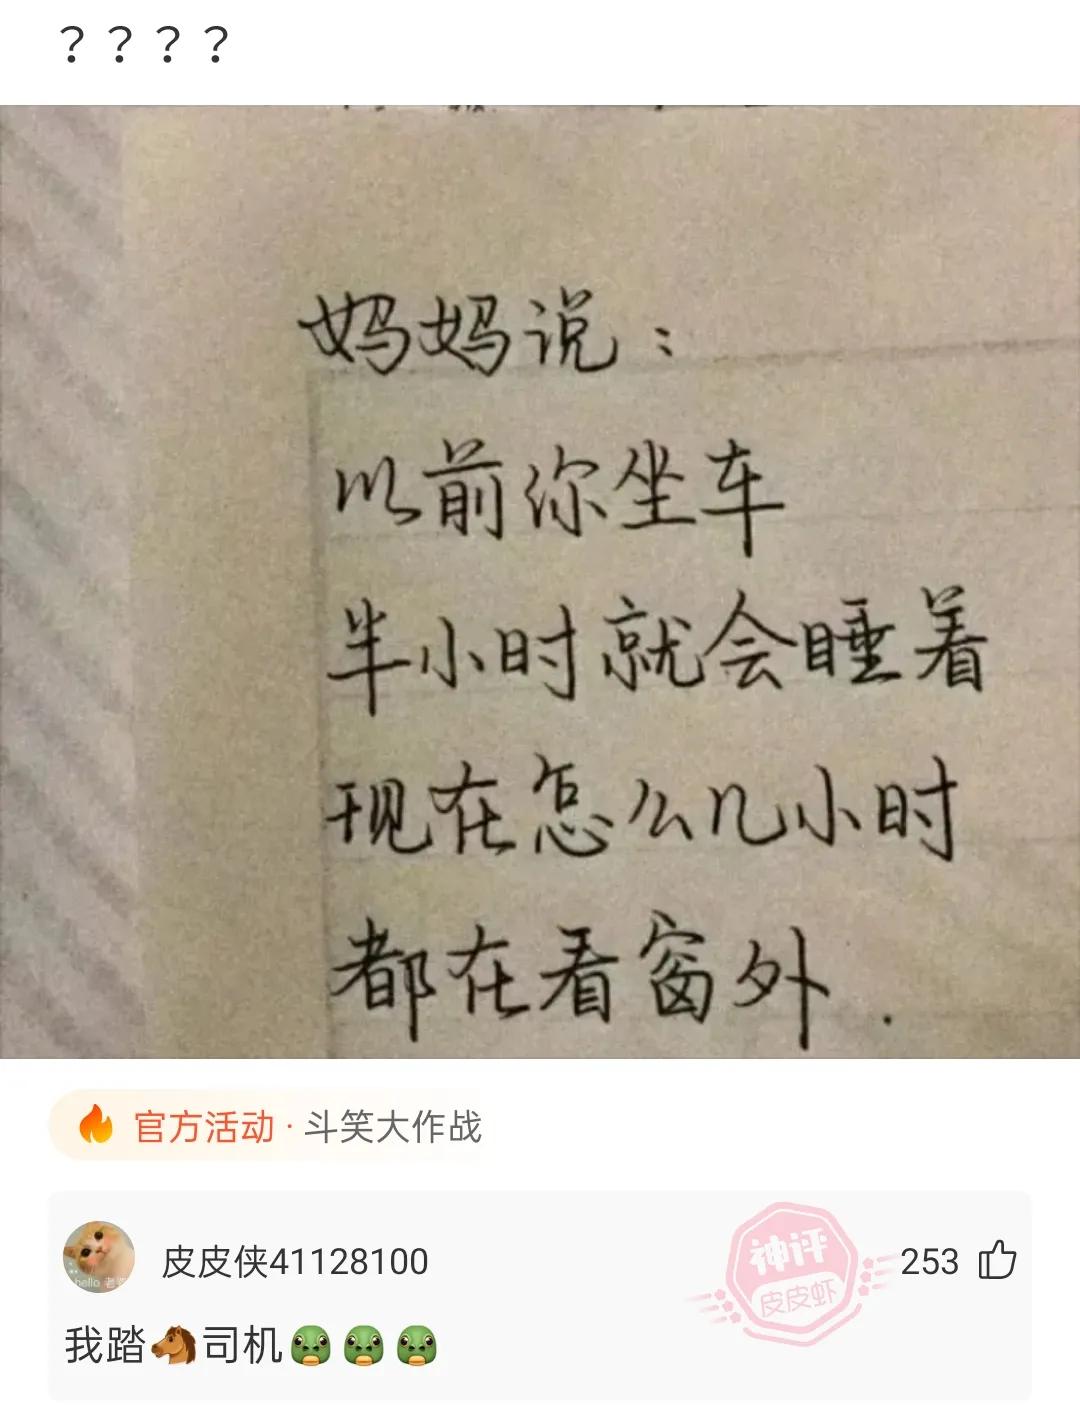 ？？？？
妈妈说：
以前你坐车
半小时就会睡着
现在怎么几小时
都在看窗外.
官方活动·斗笑大作战
皮皮侠41128100
神评
皮皮虾
253
我踏🐴司机